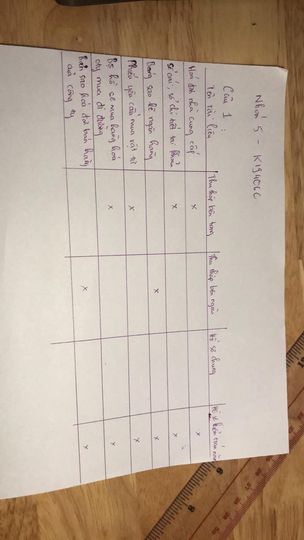 Nhóm 5 - K194CLC
Câu 1 :
Tên tài liệu Thu thập bên trong Thu thập bên ngoài Hồ sơ chung Hồ sơ kiểm toán năm
Hoá đơn nhà cung cấp x x
Sổ cái, sổ chi tiết tài khoản x x
Bảng sao kê ngân hàng x x
Phiếu yêu cầu mua vật tư x x
Bộ hồ sơ mua hàng hoá x x
cty mua đi đường
Bản sao hoá đơn bán hàng x x
của công ty